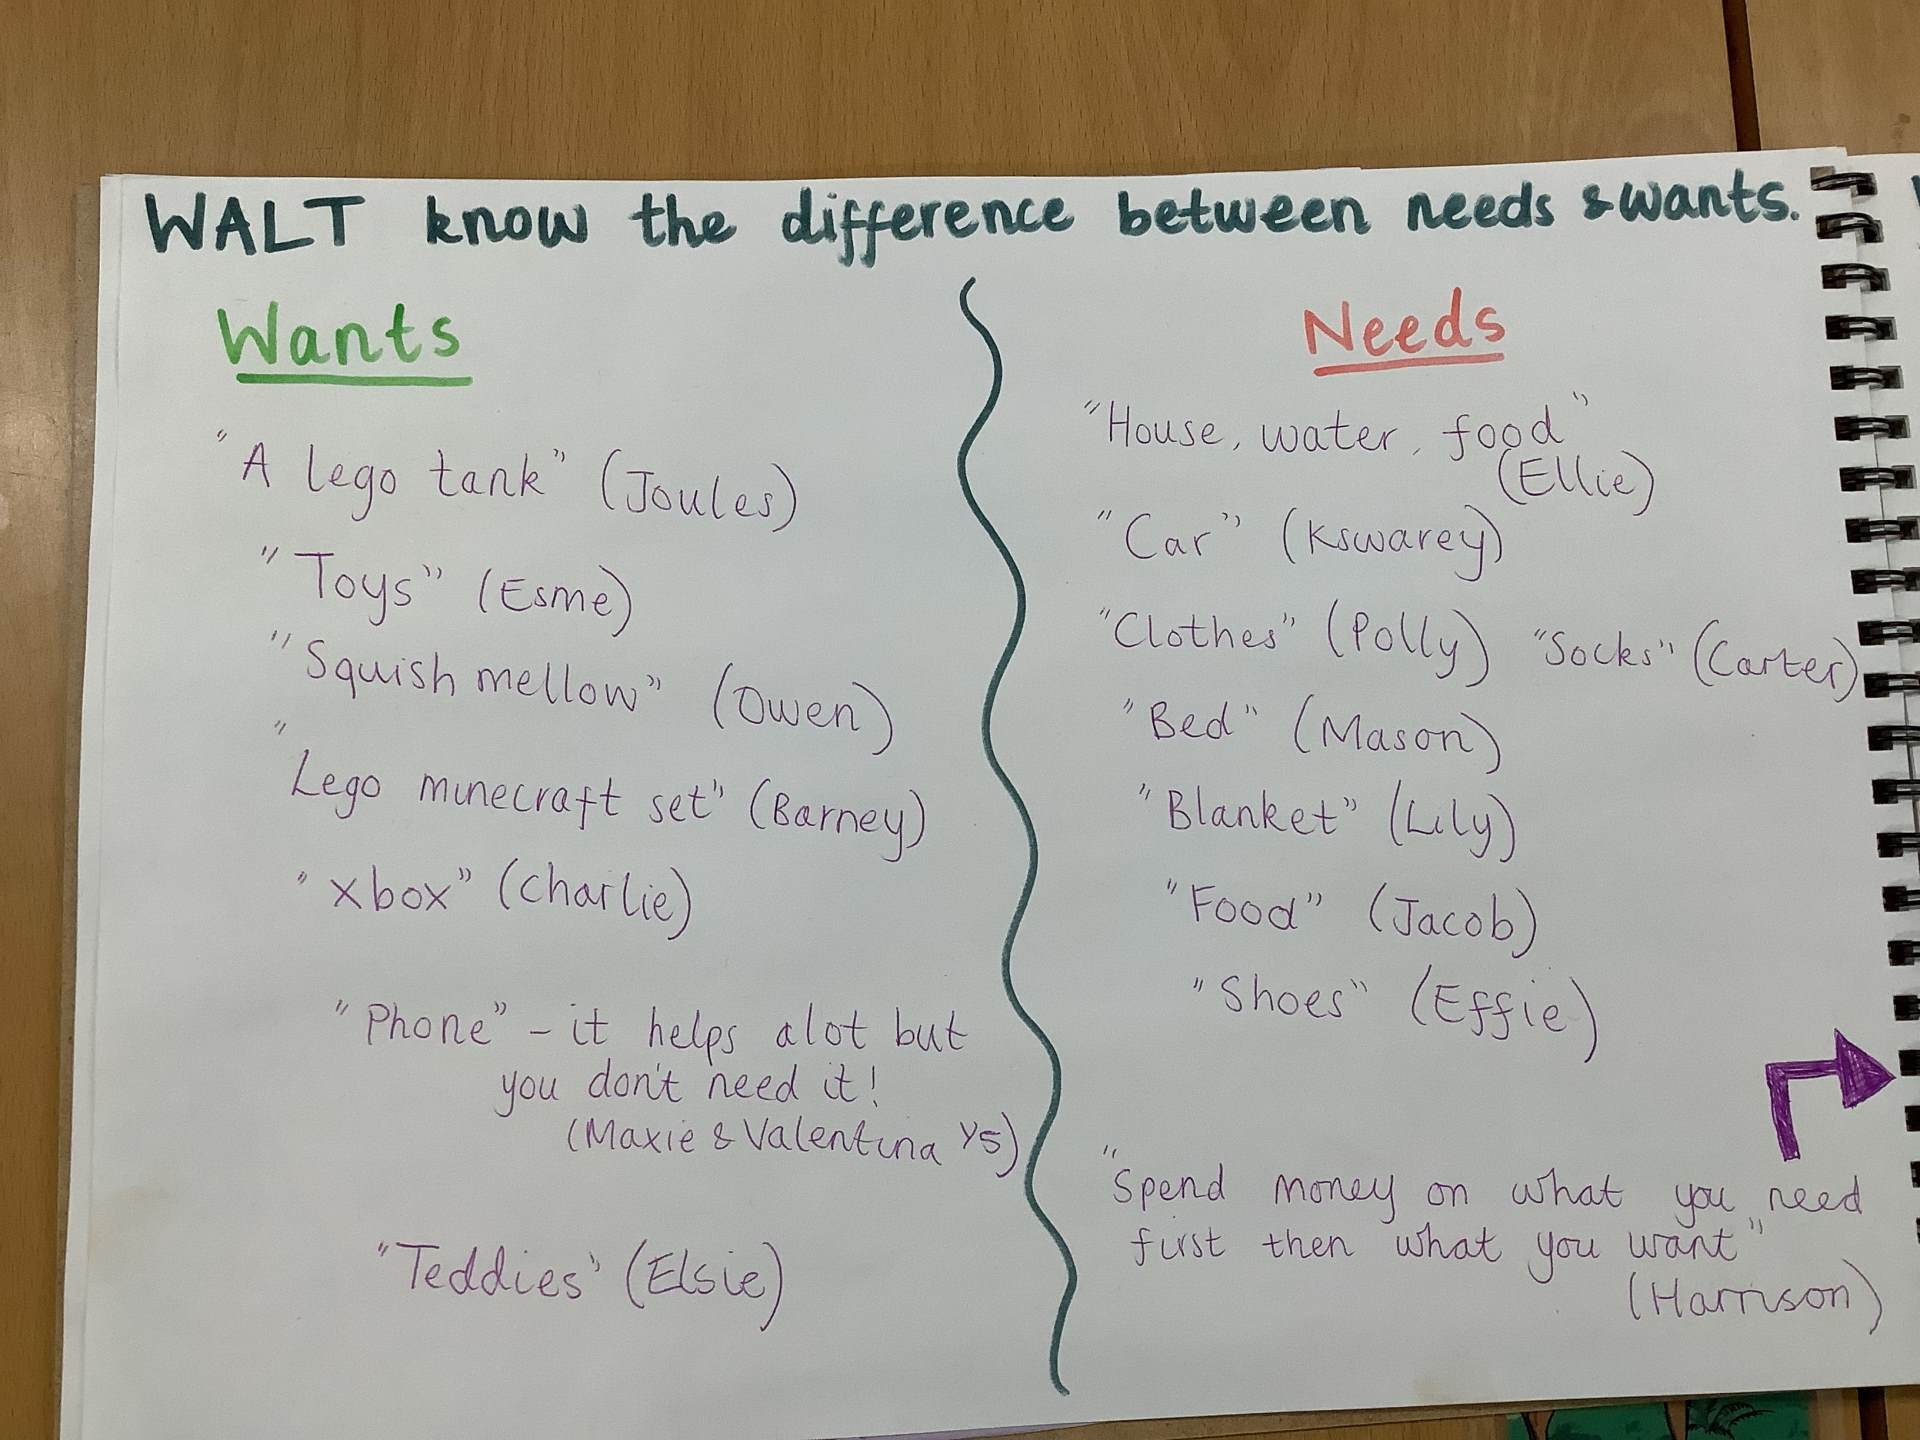 WALT know the difference between needs & wants.
Wants
"A lego tank" (Joules)
"Toys" (Esme)
"Squish mellow" (Owen)
"Lego minecraft set" (Barney)
"xbox" (Charlie)
"Phone" - it helps alot but
you don't need it!
(Maxie & Valentina Y5)
"Teddies" (Elsie)
Needs
"House, water, food"
(Ellie)
"Car" (Kswarey)
"Clothes" (Polly) "Socks" (Carter)
"Bed" (Mason)
"Blanket" (Lily)
"Food" (Jacob)
"Shoes" (Effie)
"Spend money on what you need
first then what you want"
(Harrison)